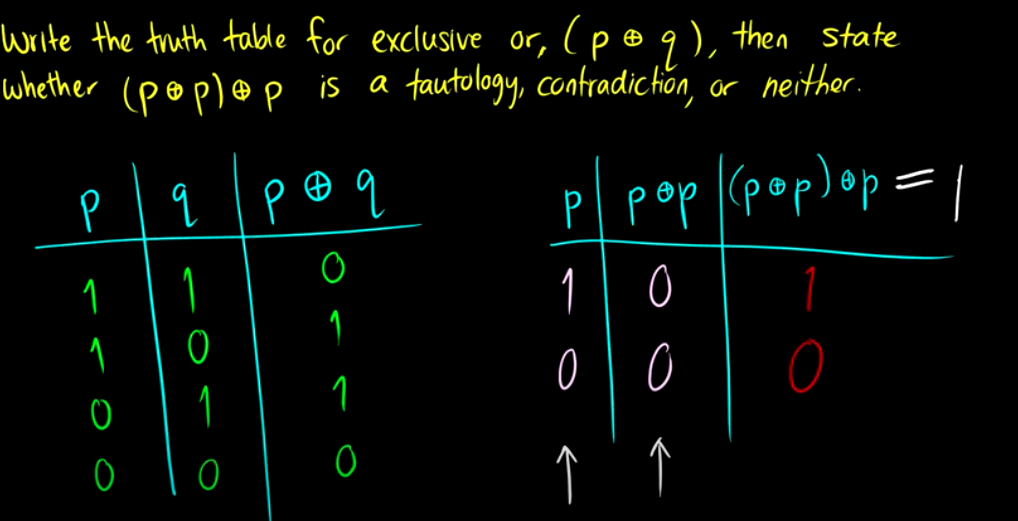 Write the truth table for exclusive or, (p ⊕ q), then state
whether (p⊕p)⊕p is a tautology, contradiction, or neither.
p q p ⊕ q
1 1 0
1 0 1
0 1 1
0 0 0
p p⊕p (p⊕p)⊕p = 1
1 0 1
0 0 0